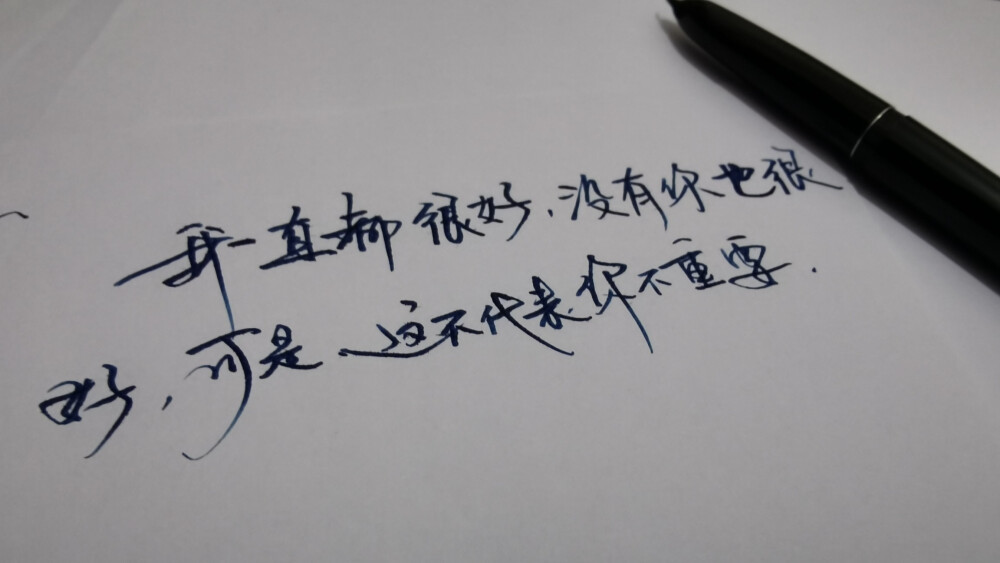 我一直都很好,没有你也很
好,可是,这不代表你不重要.